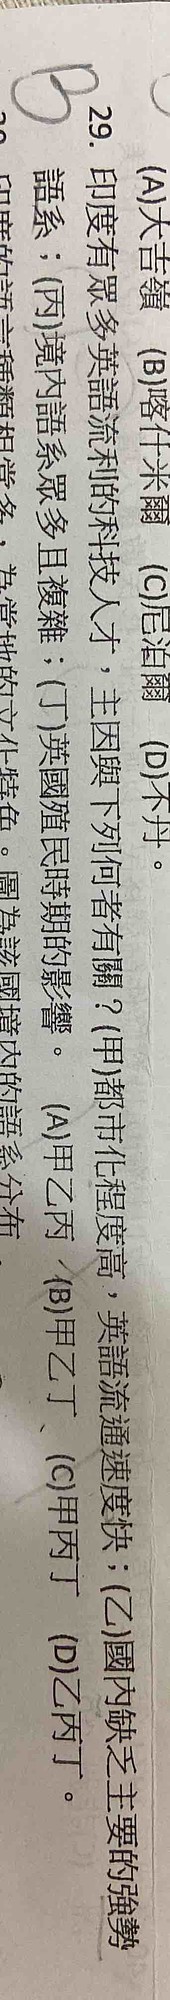 (A)大吉嶺 (B)喀什米爾 (C)尼泊爾 (D)不丹。
B 29. 印度有眾多英語流利的科技人才，主因與下列何者有關？(甲)都市化程度高，英語流通速度快；(乙)國內缺乏主要的強勢
語系；(丙)境內語系眾多且複雜；(丁)英國殖民時期的影響。 (A)甲乙丙 (B)甲乙丁 (C)甲丙丁 (D)乙丙丁。
印度的語言種類相當多，為當地的文化特色。圖為該國境內的語系分布，